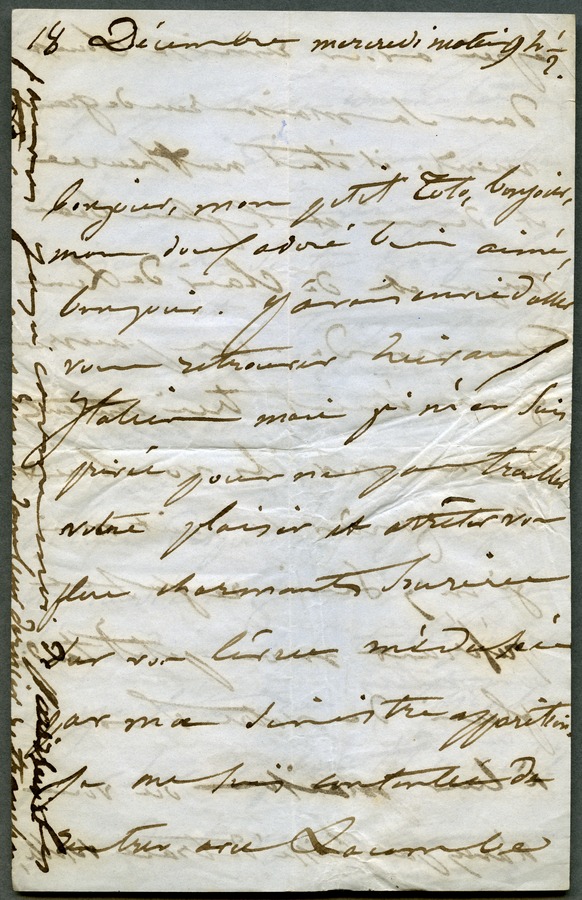 18 Décembre mercredi matin 9h ½
bonjour, mon petit Toto, bonjour,
mon doux adoré bien aimé,
bonjour. J'avais envie d'aller
vous retrouver hier aux
Italiens mais je m'en suis
privée pour ne pas troubler
votre plaisir et arrêter vos
plus charmants sourires
sur vos lèvres médusées
par ma sinistre apparition
Je me suis contentée de
rentrer avec Lacombe